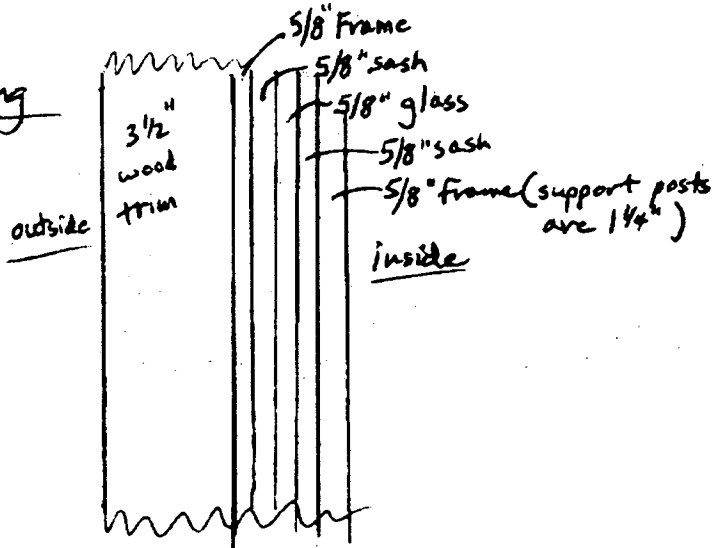 5/8" Frame
5/8" sash
5/8" glass
5/8" sash
5/8" Frame (support posts
are 1 1/4")
3 1/2"
wood
trim
outside
inside